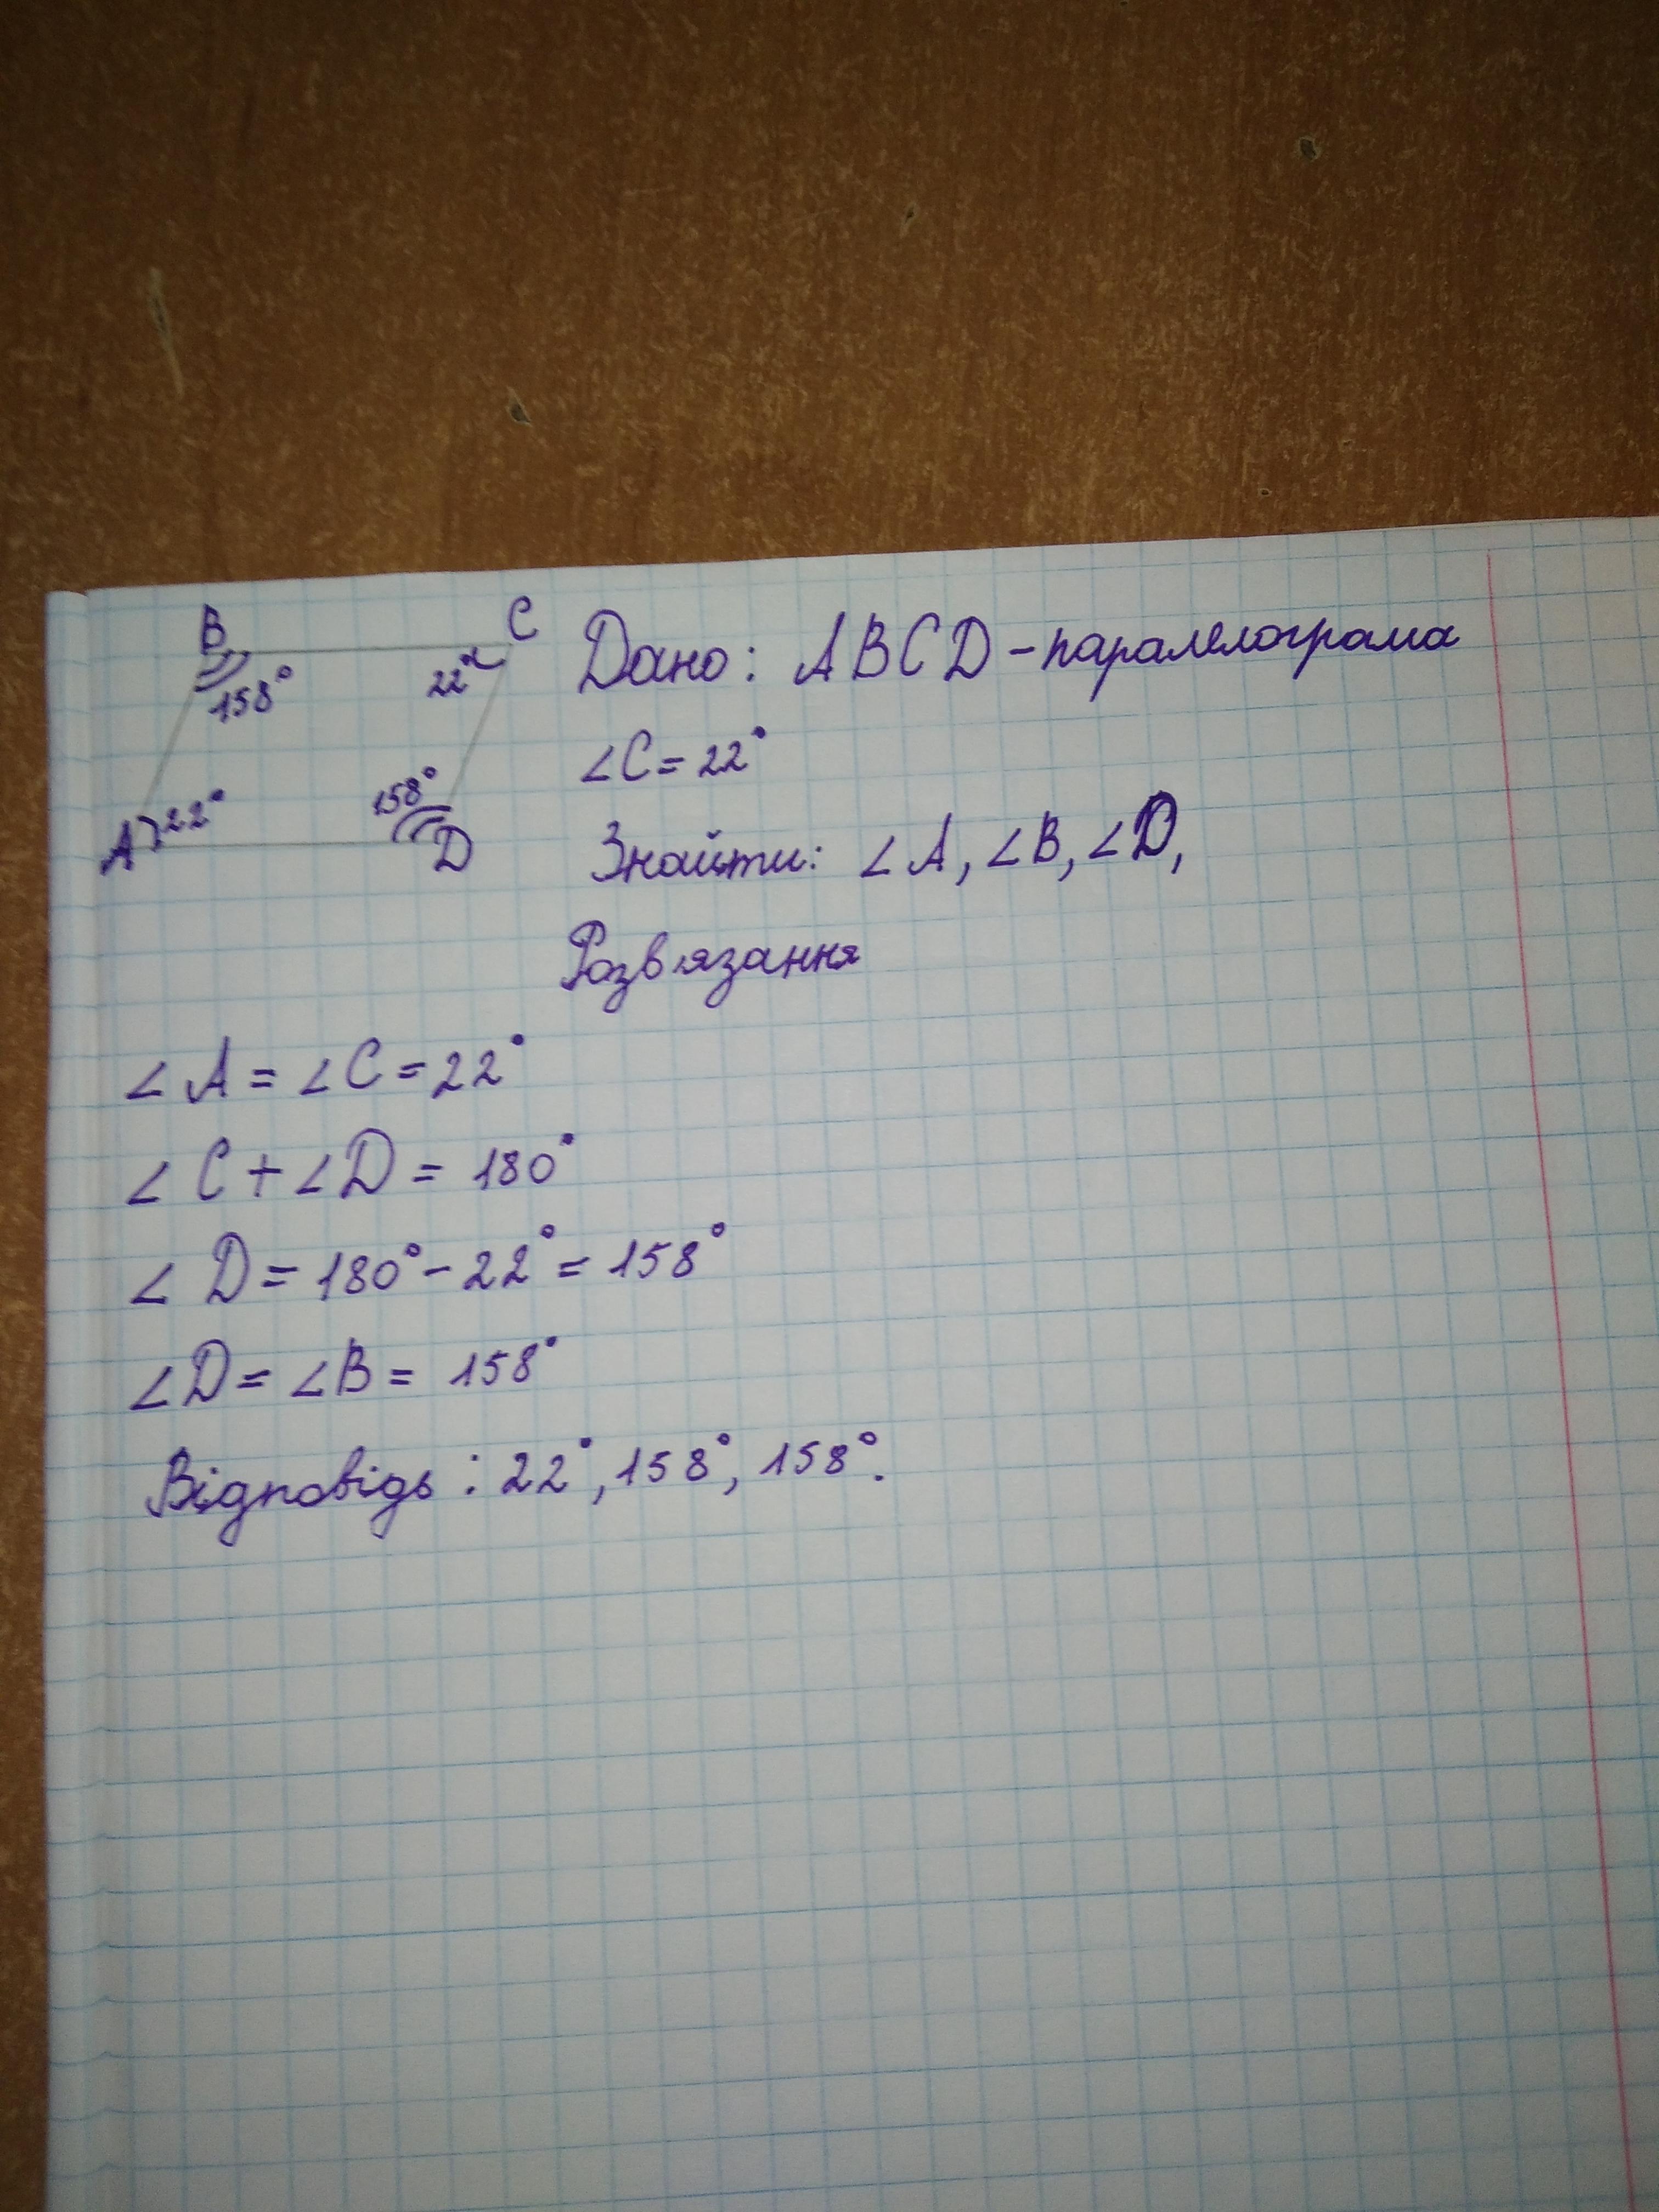 B
C
158°
22°
A
22°
158°
D
Дано: ABCD-паралелограма
∠C=22°
Знайти: ∠A, ∠B, ∠D,
Розв'язання
∠A=∠C=22°
∠C+∠D=180°
∠D=180°-22°=158°
∠D=∠B=158°
Відповідь: 22°, 158°, 158°.